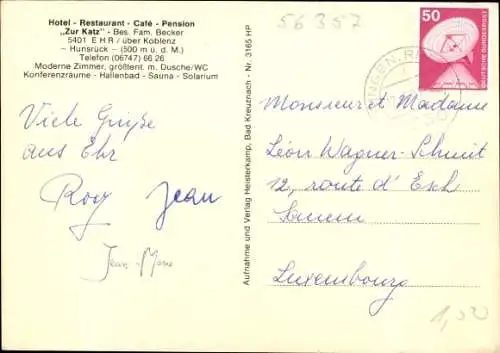 Hotel - Restaurant - Café - Pension
„Zur Katz" - Bes. Fam. Becker
5401 EHR / über Koblenz
– Hunsrück – (500 m ü. d. M.)
Telefon (06747) 66 26
Moderne Zimmer, größtent. m. Dusche/WC
Konferenzräume - Hallenbad - Sauna - Solarium
Viele Grüße
aus Ehr
Roy Jean
Jean-Marie
Aufnahme und Verlag Heisterkamp, Bad Kreuznach - Nr. 3165 HP
56 357
50
DEUTSCHE BUNDESPOST
Monsieur et Madame
Léon Wagner-Schmit
12, route d'Esch
Luxembourg
1,50